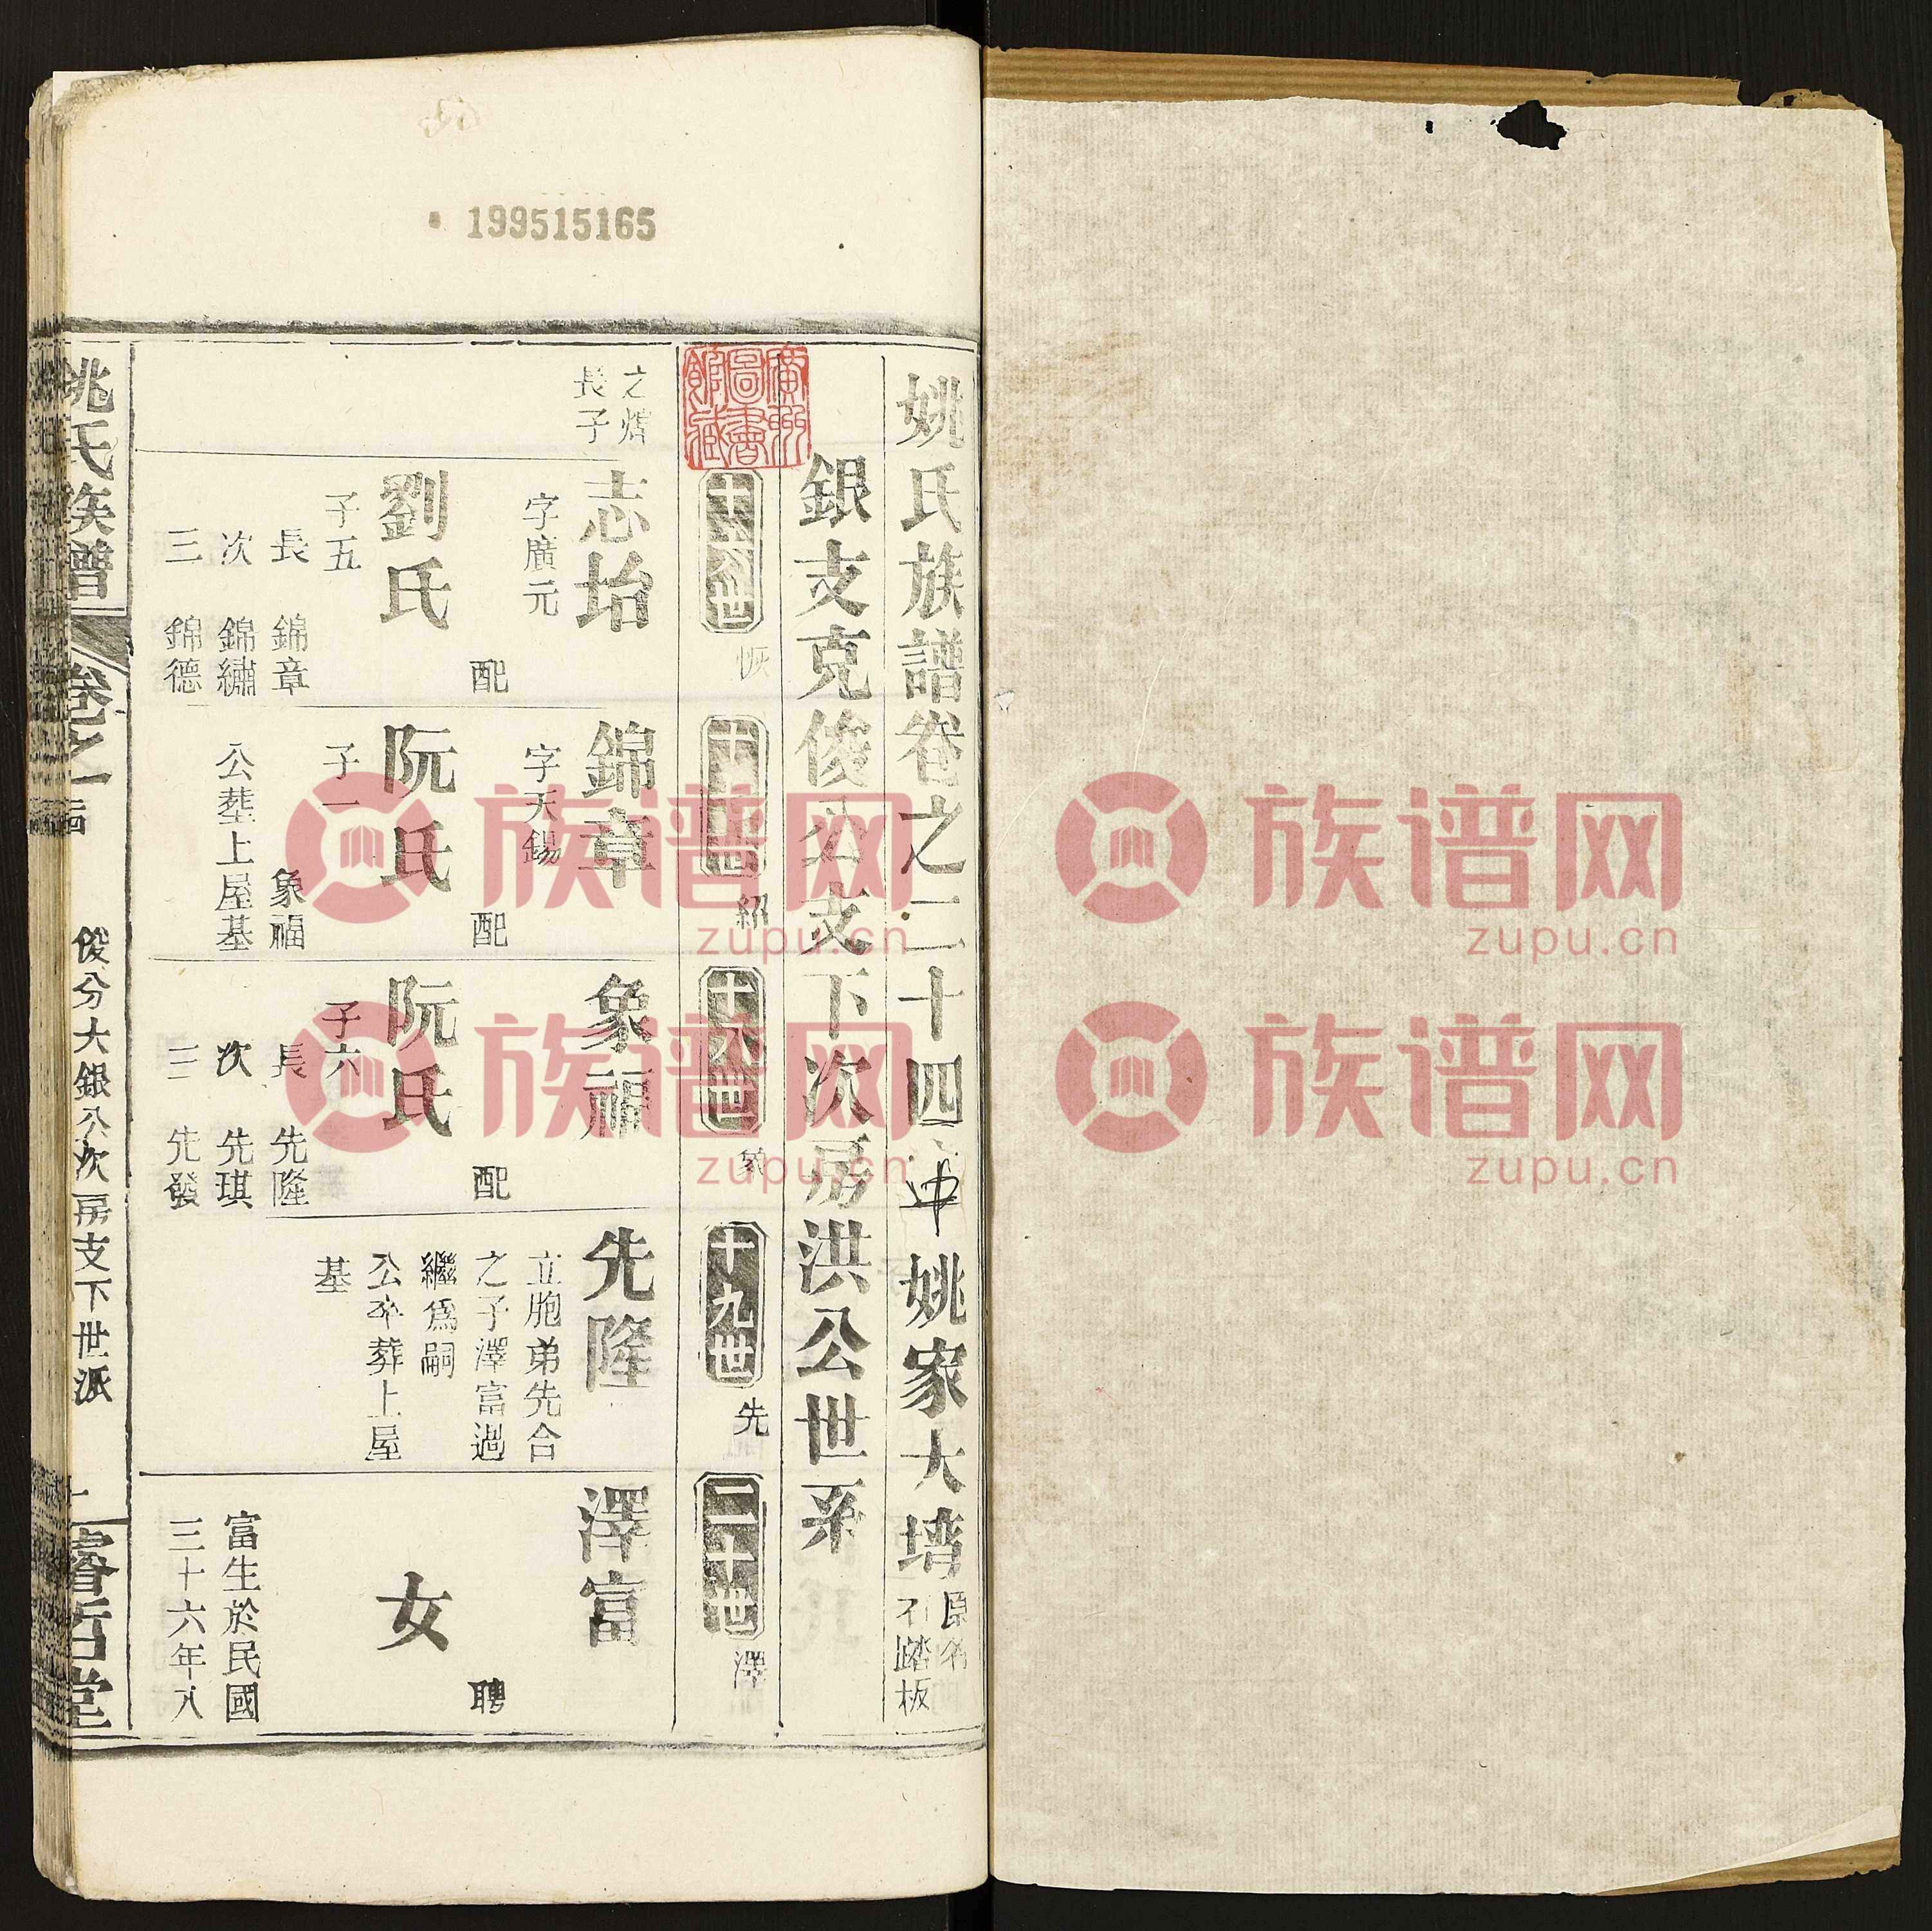 199515165
姚氏族譜卷之二十四 中 姚家大塝
原名
石踏板
銀支克俊公支下次房洪公世系
廣州
圖書
館藏
十六世
十七世 紹
十八世 象
十九世 先
二十世 澤
之煒
長子
志坮
字廣元
配
劉氏
子五
長 錦章
次 錦繡
三 錦德
錦章
字天錫
配
阮氏
子一
象福
公塟上屋基
象福
配
阮氏
子六
長 先隆
次 先琪
三 先發
先隆
立胞弟先合
之子澤富過
繼爲嗣
公卒葬上屋
基
澤富
聘
女
富生於民國
三十六年八
姚氏族譜 卷之二十四 俊分大銀公次房支下世派 一 睿哲堂
族谱网
zupu.cn
族谱网
zupu.cn
族谱网
zupu.cn
族谱网
zupu.cn